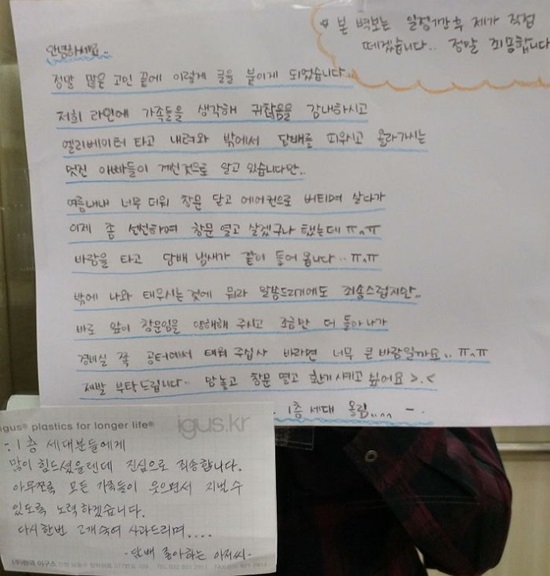 ※ 본 벽보는 일정기간 후 제가 직접
떼겠습니다.. 정말 죄송합니다
안녕하세요..
정말 많은 고민 끝에 이렇게 글을 붙이게 되었습니다.
저희 라인에 가족들을 생각해 귀찮음을 감내하시고
엘리베이터 타고 내려와 밖에서 담배를 피우시고 올라가시는
멋진 아빠들이 계신것으로 알고 있습니다만..
여름내내 너무 더워 창문 닫고 에어컨으로 버티며 살다가
이제 좀 선선하여 창문 열고 살겠구나 했는데 ㅠ.ㅠ
바람을 타고 담배 냄새가 끝이 들어 옵니다.. ㅠ.ㅠ
밖에 나와 태우시는 것에 뭐라 말씀드리기에도 죄송스럽지만..
바로 앞이 창문임을 양해해 주시고 조금만 더 돌아 나가
경비실 쪽 공터에서 태워 주십사 바라면 너무 큰 바람일까요.. ㅠ.ㅠ
제발 부탁드립니다.. 맘놓고 창문 열고 환기 시키고 싶어요 >.<
1층 세대 올림....
igus® plastics for longer life® igus.kr
1층 세대분들에게
많이 힘드셨을텐데 진심으로 죄송합니다.
아무쪼록 모든 가족들이 웃으면서 지낼 수
있도록 노력하겠습니다.
다시한번 고개숙여 사과드리며....
- 담배 좋아하는 아저씨-